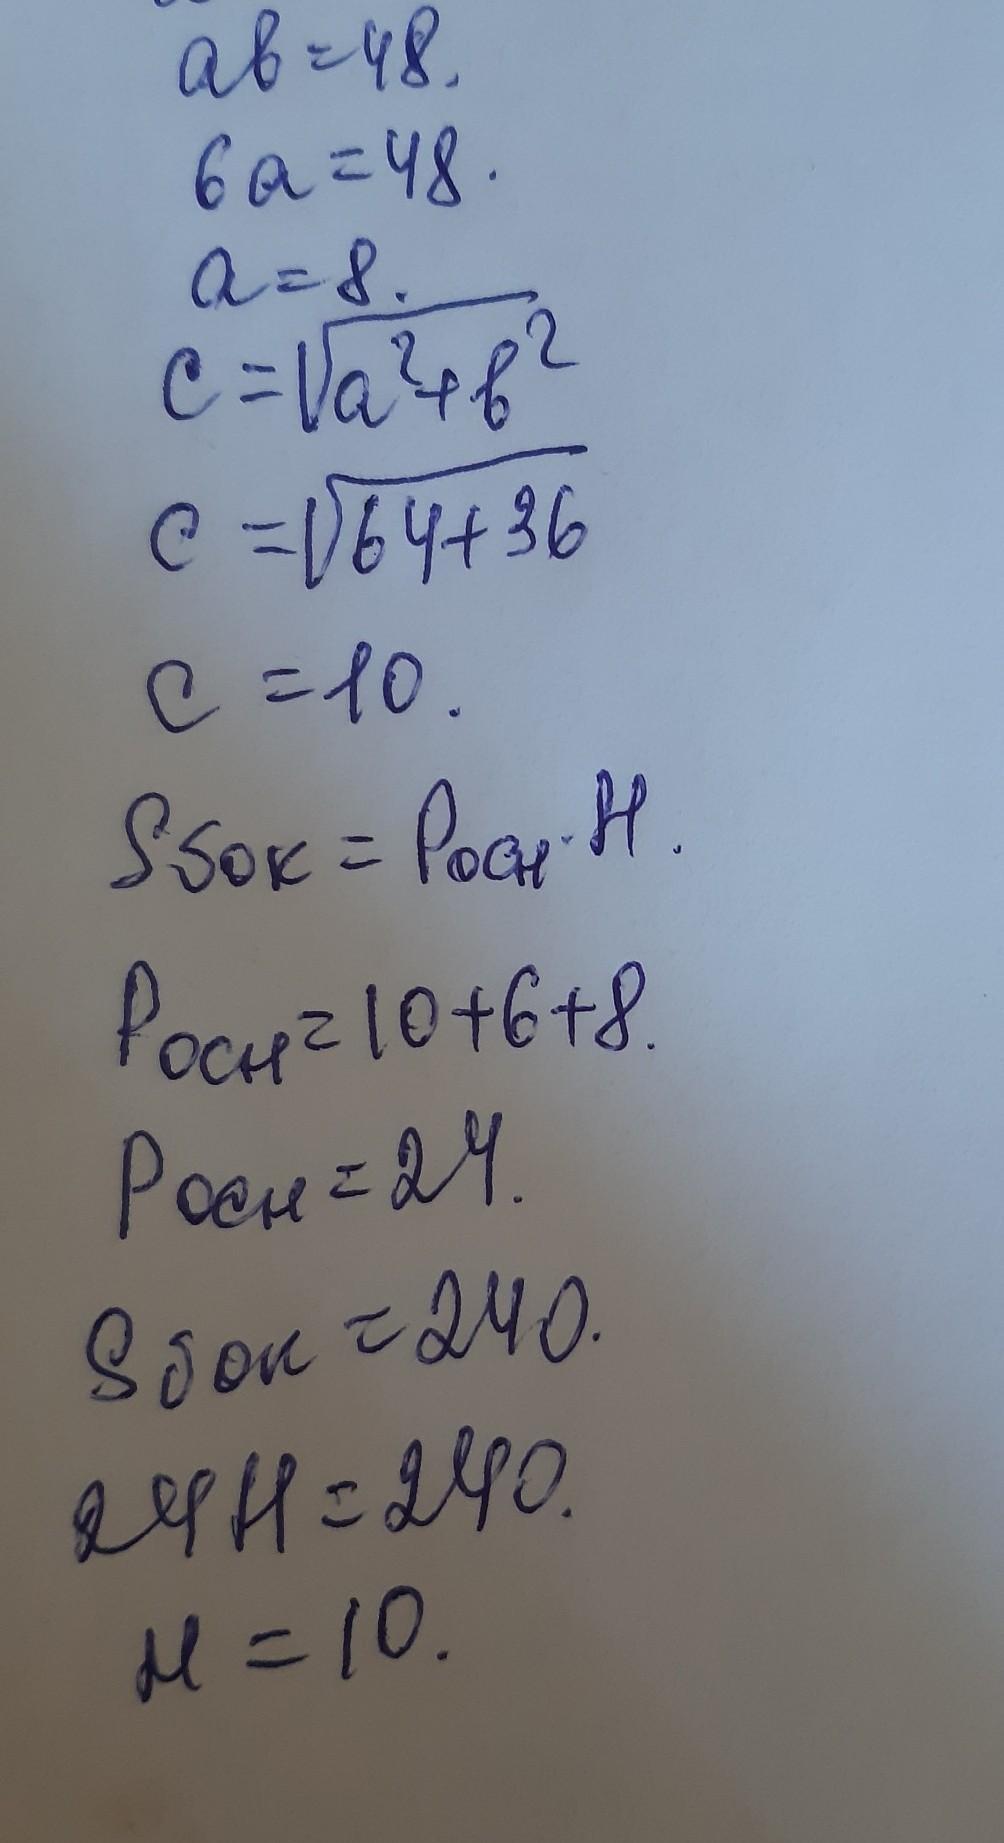 ab=48.
6a=48.
a=8.
c=√a²+b²
c=√64+36
c=10.
Sбок=Pосн·H.
Pосн=10+6+8.
Pосн=24.
Sбок=240.
24H=240.
H=10.